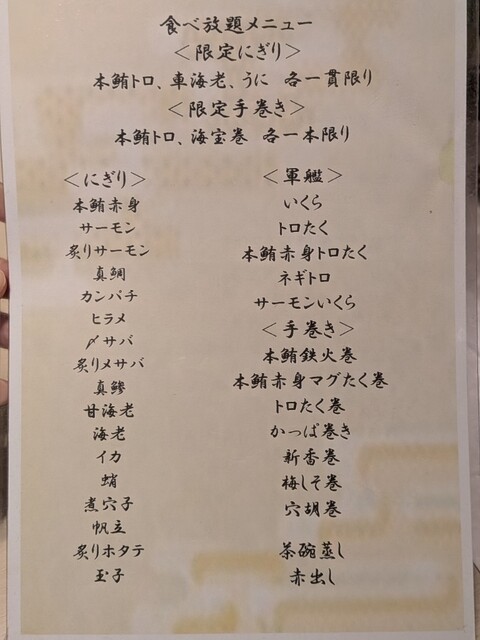 食べ放題メニュー
＜限定にぎり＞
本鮪トロ、車海老、うに 各一貫限り
＜限定手巻き＞
本鮪トロ、海宝巻 各一本限り
＜にぎり＞
本鮪赤身
サーモン
炙りサーモン
真鯛
カンパチ
ヒラメ
〆サバ
炙り〆サバ
真鯵
甘海老
海老
イカ
蛸
煮穴子
帆立
炙りホタテ
玉子
＜軍艦＞
いくら
トロたく
本鮪赤身トロたく
ネギトロ
サーモンいくら
＜手巻き＞
本鮪鉄火巻
本鮪赤身マグたく巻
トロたく巻
かっぱ巻き
新香巻
梅しそ巻
穴胡巻
茶碗蒸し
赤出し